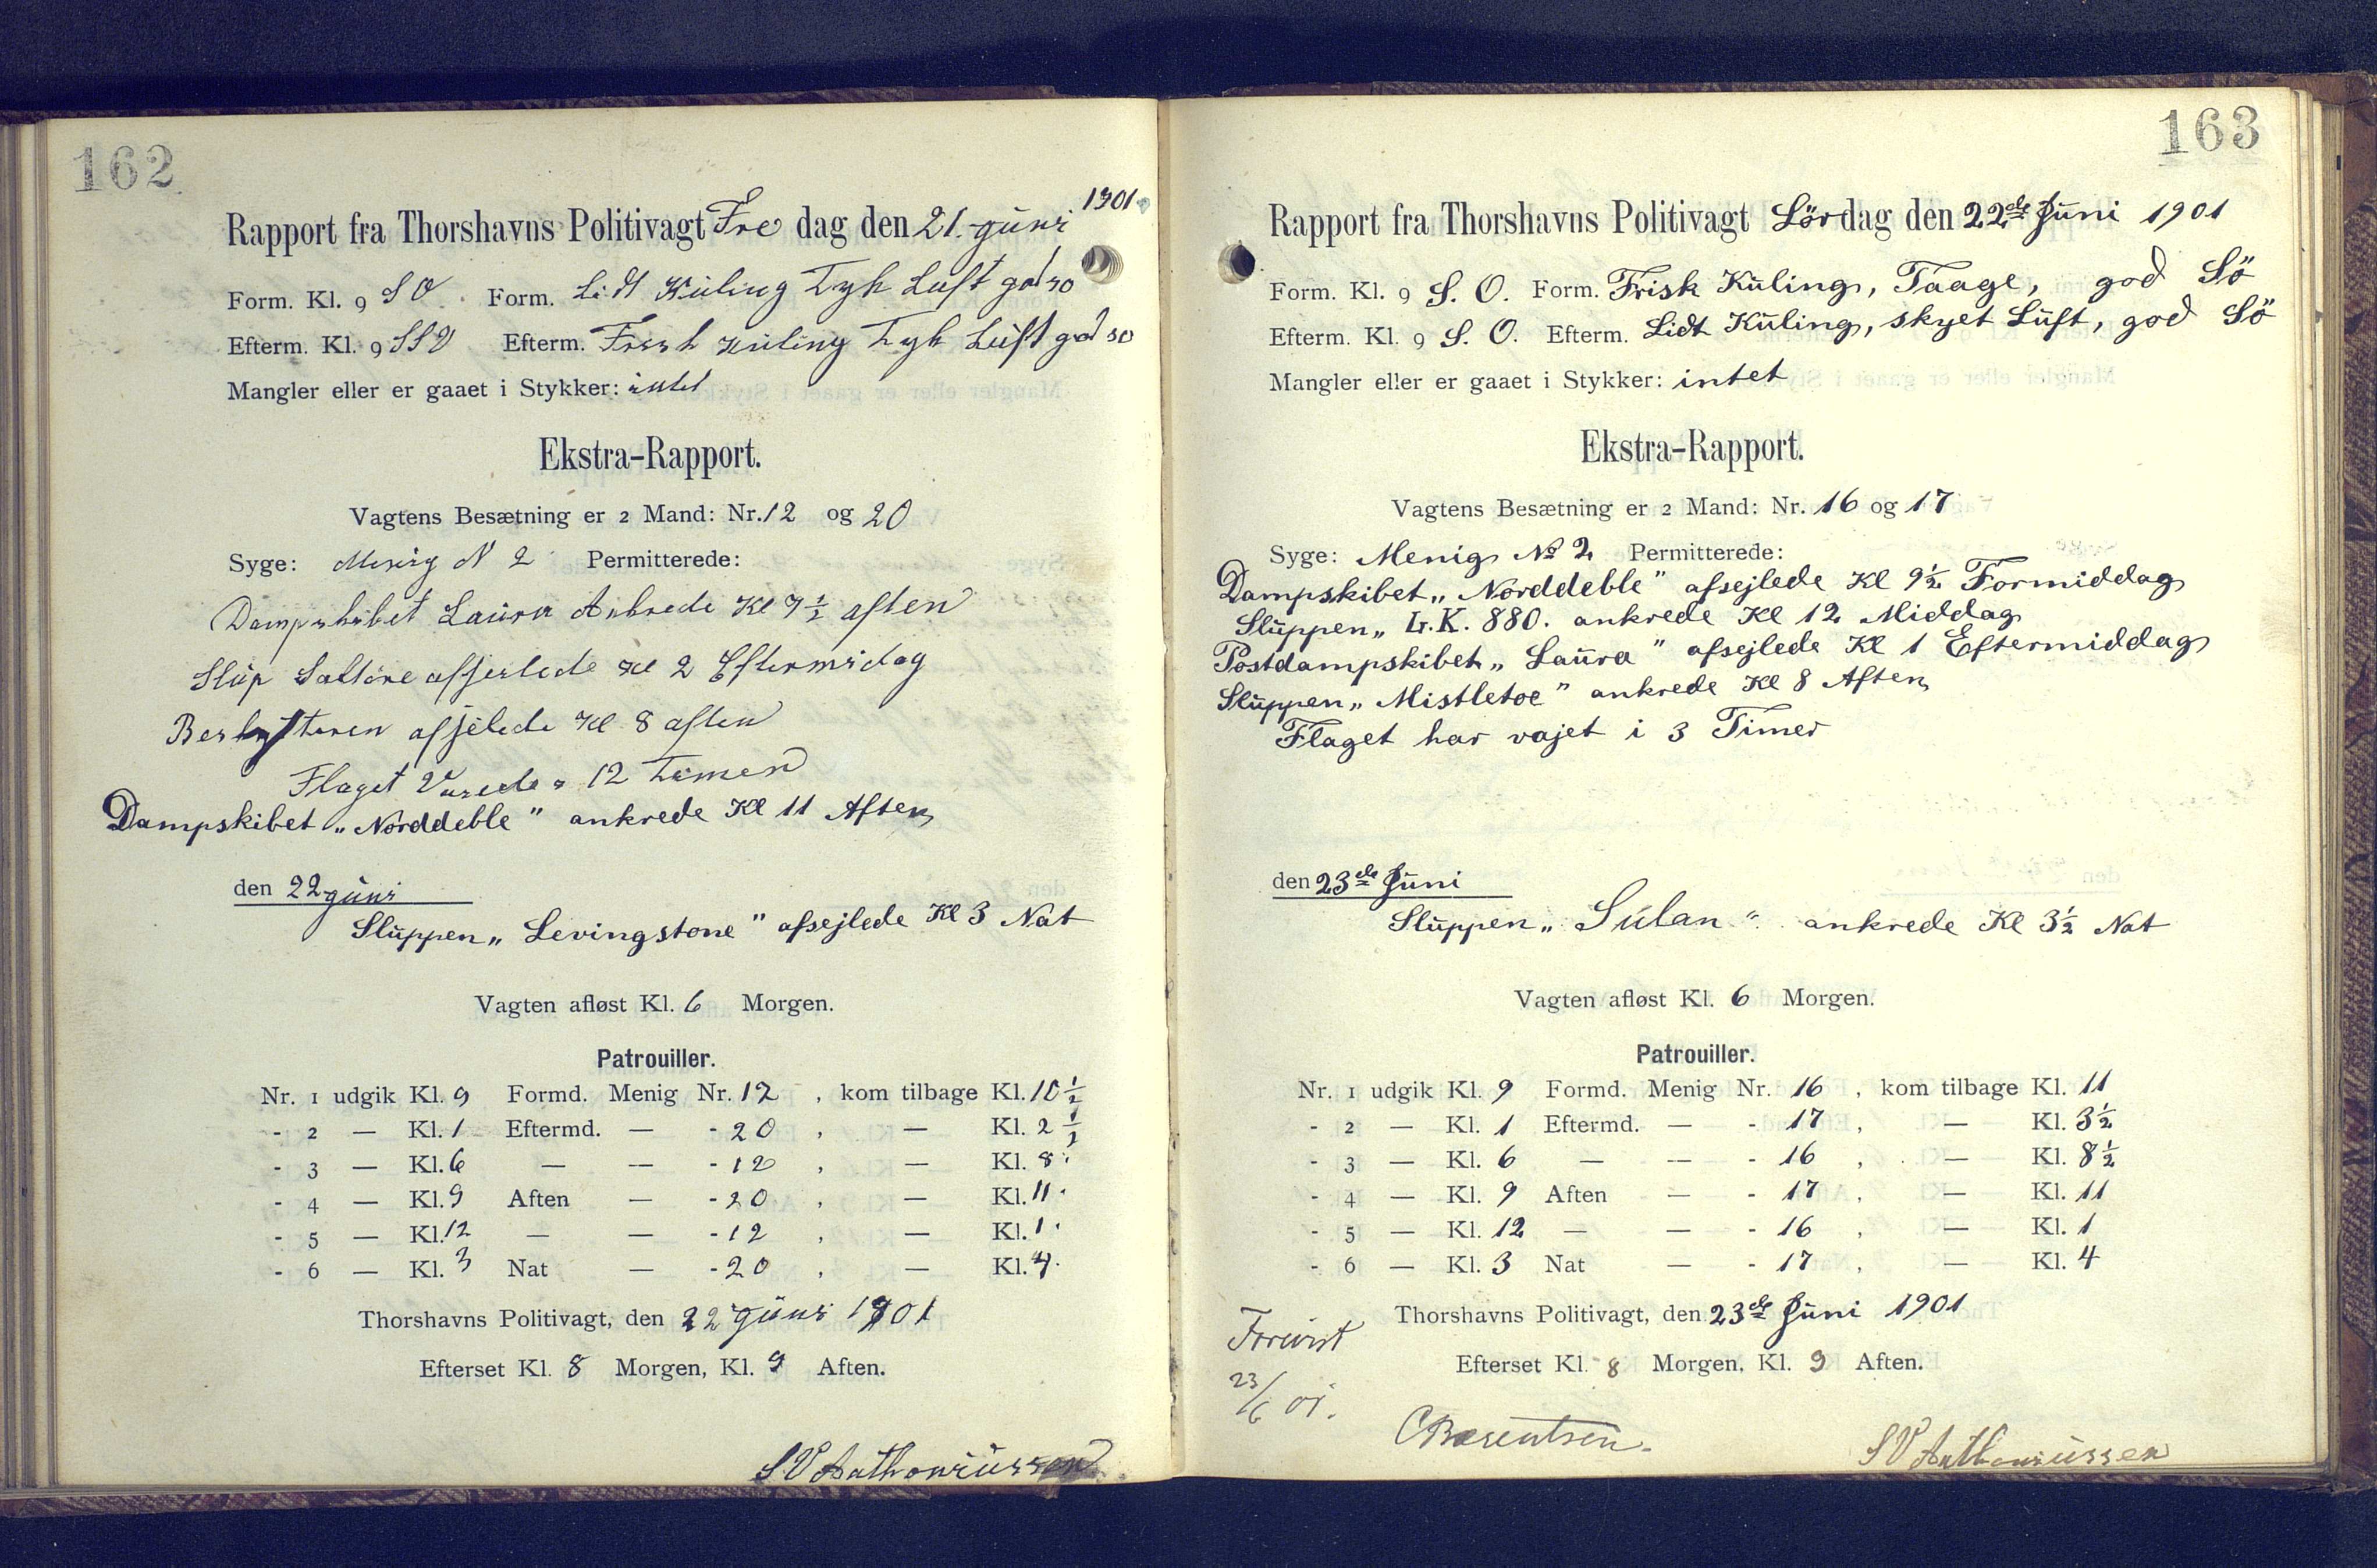 162
Rapport fra Thorshavns Politivagt Fre dag den 21. Juni 1901
Form. Kl. 9 S O Form. Lidt Kuling Tyk Luft god so
Efterm. Kl. 9 SSO Efterm. Frisk Kuling Tyk Luft god so
Mangler eller er gaaet i Stykker: intet
Ekstra-Rapport.
Vagtens Besætning er 2 Mand: Nr. 12 og 20
Syge: Menig N 2 Permitterede:
Dampskibet Laura Ankrede Kl 7½ aften
Slup afsejlede Kl 2 Eftermidag
afsjelede Kl 8 aften
Flaget 12 Timer
Dampskibet „Norddeble" ankrede Kl 11 Aften
den 22 Juni
Sluppen „Levingstone" afsejlede Kl 3 Nat
Vagten afløst Kl. 6 Morgen.
Patrouiller.
Nr. 1 udgik Kl. 9 Formd. Menig Nr. 12 , kom tilbage Kl. 10½
- 2 — Kl. 1 Eftermd. — - 20 , — Kl. 2½
- 3 — Kl. 6 — — - 12 , — Kl. 8.
- 4 — Kl. 9 Aften — - 20 , — Kl. 11.
- 5 — Kl. 12 — — - 12 , — Kl. 1.
- 6 — Kl. 3 Nat — - 20 , — Kl. 4.
Thorshavns Politivagt, den 22 Juni 1901
Efterset Kl. 8 Morgen, Kl. 9 Aften.
S V Anthoniussen
163
Rapport fra Thorshavns Politivagt Lör dag den 22de Juni 1901
Form. Kl. 9 S. O. Form. Frisk Kuling, Taage, god Sö
Efterm. Kl. 9 S. O. Efterm. Lidt Kuling, skyet Luft, god Sö
Mangler eller er gaaet i Stykker: intet
Ekstra-Rapport.
Vagtens Besætning er 2 Mand: Nr. 16 og 17
Syge: Menig No 2 Permitterede:
Dampskibet „Norddeble" afsejlede Kl 9½ Formiddag
Sluppen „L.K. 880. ankrede Kl 12 Middag
Postdampskibet „Laura" afsejlede Kl 1 Eftermiddag
Sluppen „Mistletoe" ankrede Kl 8 Aften
Flaget har vajet i 3 Timer
den 23de Juni
Sluppen „Sulan" ankrede Kl 3½ Nat
Vagten afløst Kl. 6 Morgen.
Patrouiller.
Nr. 1 udgik Kl. 9 Formd. Menig Nr. 16 , kom tilbage Kl. 11
- 2 — Kl. 1 Eftermd. — - 17 , — Kl. 3½
- 3 — Kl. 6 — — - 16 , — Kl. 8½
- 4 — Kl. 9 Aften — - 17 , — Kl. 11
- 5 — Kl. 12 — — - 16 , — Kl. 1
- 6 — Kl. 3 Nat — - 17 , — Kl. 4
Thorshavns Politivagt, den 23de Juni 1901
Efterset Kl. 8 Morgen, Kl. 9 Aften.
Forevist
23/6 01.
C Bærentsen.
S V Anthoniussen